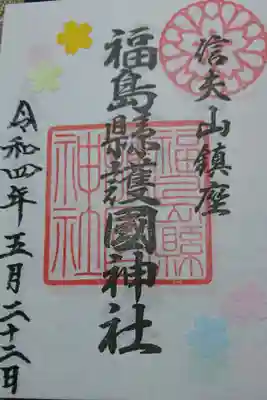 信夫山鎮座
福島縣護國神社
福島縣
神社
令和四年五月二十二日